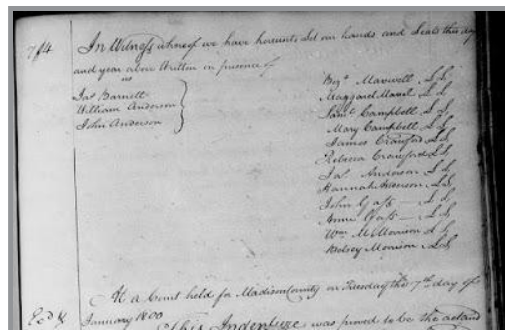 7/4
In Witness whereof we have hereunto Set our hands and Seals this day
and year above Written in presence of
Jas Barnett
William Anderson
John Anderson
Bezl Maxwell L S
Margaret Maxwel L S
Saml Campbell L S
Mary Campbell L S
James Crawford L S
Rebecca Crawford L S
Jas Anderson L S
Hannah Anderson L S
John Gass L S
Anne Gass L S
Wm M Morrison L S
Betsey Morrison L S
At a Court held for Madison County on Tuesday the 7th day of
January 1800
This Indenture was proved to be the act and